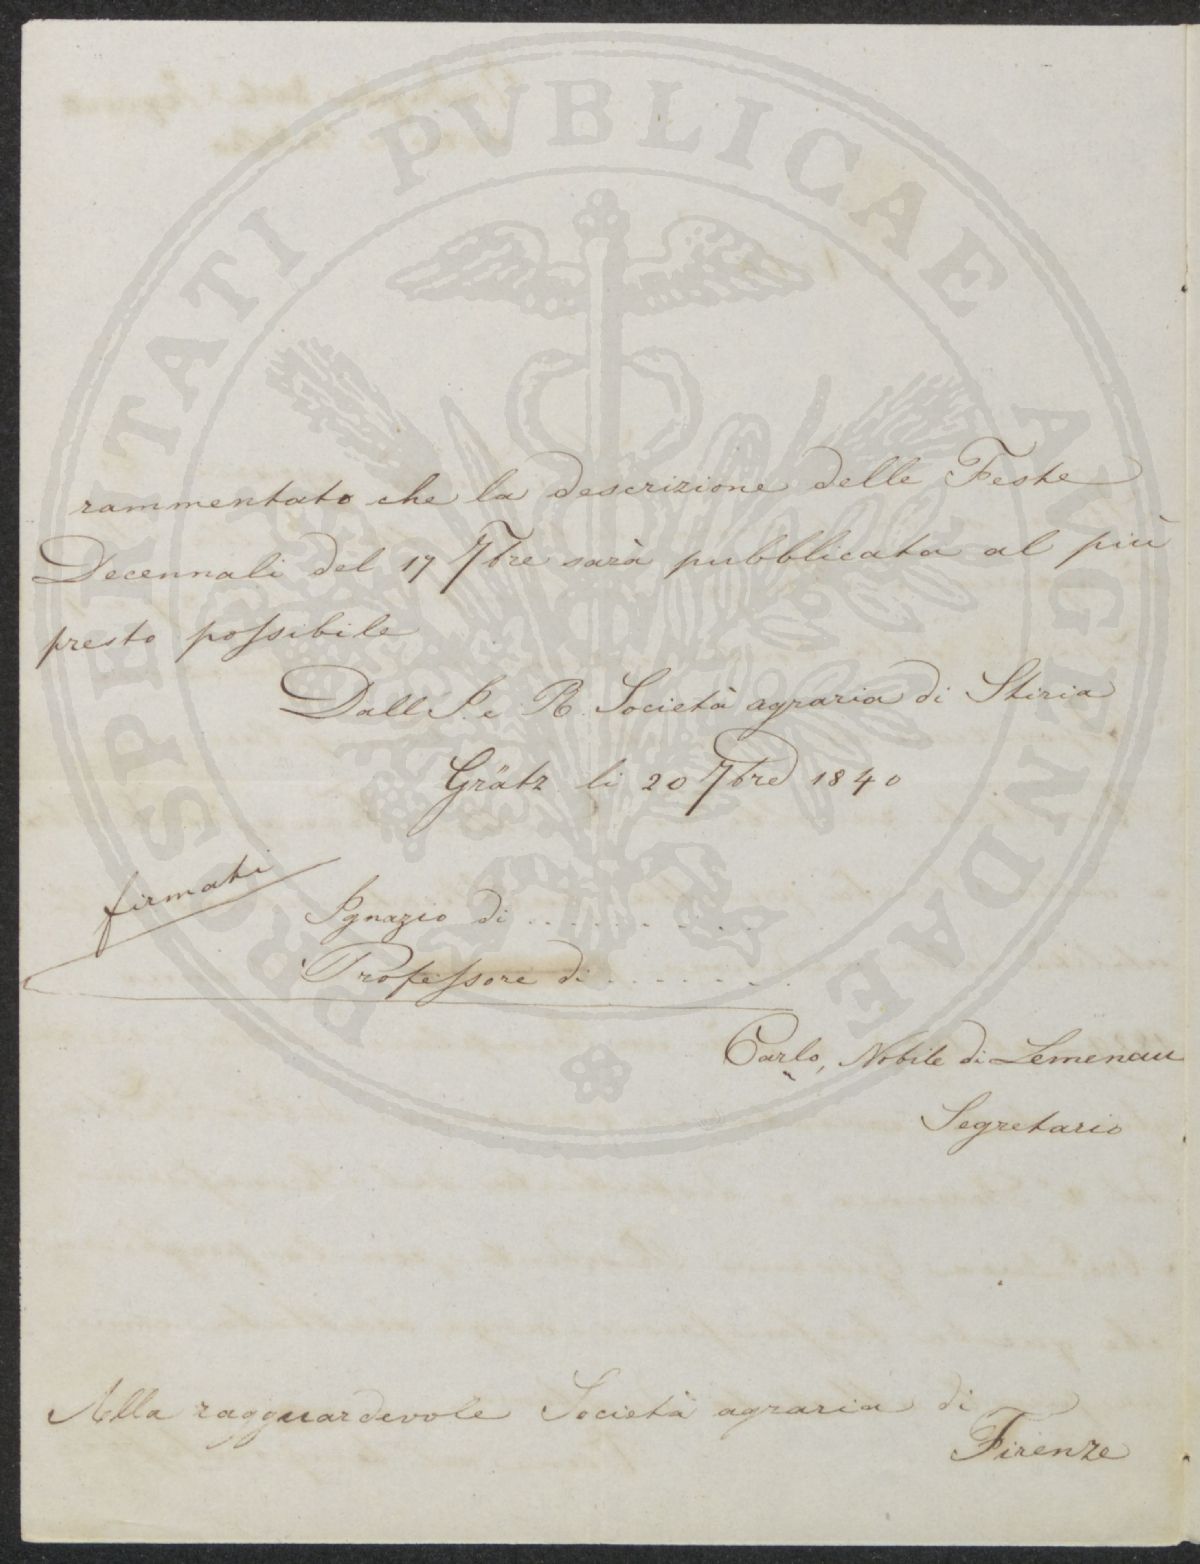 PROSPERITATI PVBLICAE AVGENDAE
rammentato che la descrizione delle Feste
Decennali del 17 7bre sarà pubblicata al più
presto possibile
Dall I. e R. Società agraria di Stiria
Grätz li 20 7bre 1840
firmati
Ignazio di . . . . . . . . .
Professore di . . . . . . .
Carlo, Nobile di Lemenau
Segretario
Alla ragguardevole Società agraria di
Firenze